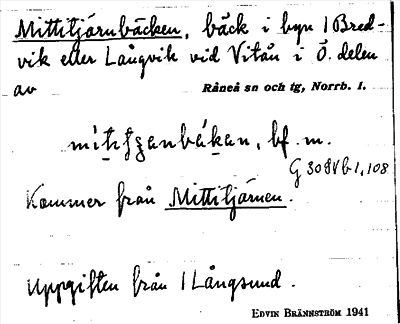 Mittitjärnbäcken, bäck i byn 1 Bred-
vik eller Långvik vid Vitån i Ö. delen
av Råneå sn och tg, Norrb. l.
bf. m.
G 308 Vb1, 108
Kommer från Mittitjärnen.
Uppgiften från 1 Långsund.
EDVIN BRÄNNSTRÖM 1941